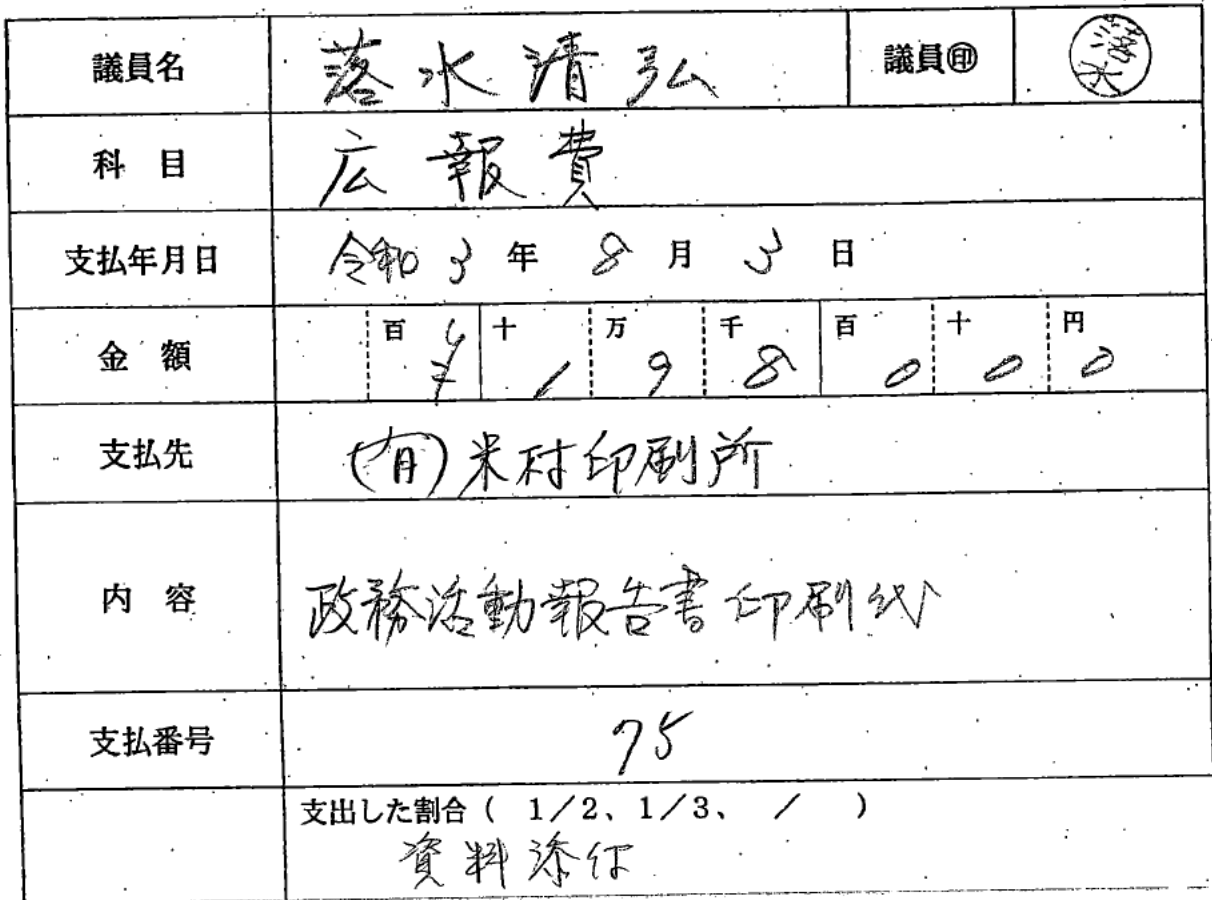 議員名 落水清弘 議員㊞ 落水
科 目 広報費
支払年月日 令和3年8月3日
金 額 百 ¥ 十 1 万 9 千 8 百 0 十 0 円 0
支払先 (有)米村印刷所
内 容 政務活動報告書印刷代
支払番号 75
支出した割合( 1/2、1/3、 / )
資料添付